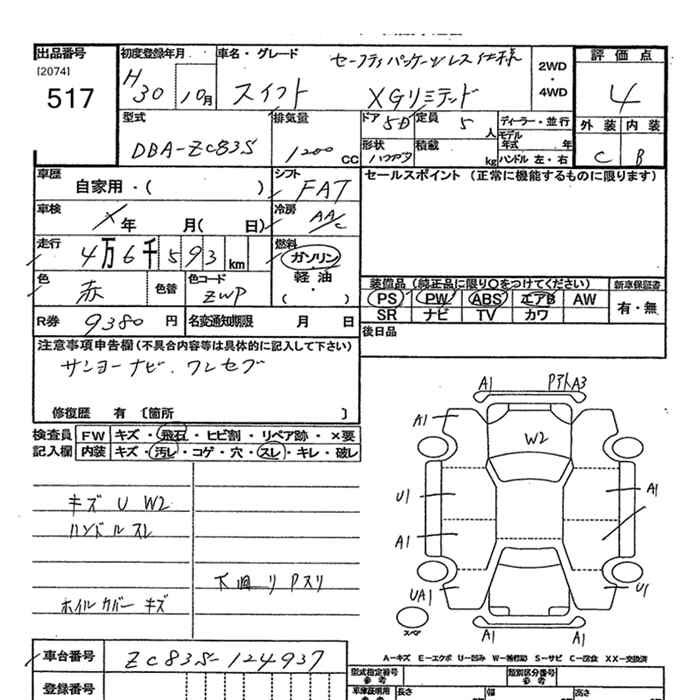 出品番号 初度登録年月 車名・グレード セーフティパッケージレス仕様 2WD・4WD 評価点
[2074]
517 H30 10月 スイフト XGリミテッド 4
型式 排気量 ドア 5D 定員 5人 ディーラー・並行 外装 内装
DBA-ZC83S 1200cc 形状 ハツチバツク 積載 kg モデル年式 年 C B
ハンドル 左・右
車歴 自家用・( ) シフト FAT セールスポイント (正常に機能するものに限ります)
車検 X年 月( 日) 冷房 AA/C
走行 4万6千593km 燃料 ガソリン・軽油・( )
色 赤 色替 色コード ZWP 装備品 (純正品に限り○をつけてください) 新車保証書
PS PW ABS エアB AW 有・無
R券 9380円 名変通知期限 月 日 SR ナビ TV カワ
後日品
注意事項申告欄 (不具合内容等は具体的に記入して下さい)
サンヨーナビ、ワンセグ
修復歴 有 〔箇所 〕
検査員記入欄 FW キズ・飛石・ヒビ割・リペア跡・×要
内装 キズ・汚レ・コゲ・穴・スレ・キレ・破レ
キズ U W2
ハンドルスレ
下回リ Pスリ
ホイルカバーキズ
A1 PアトA3
A1
W2
U1 A1
A1
UA1 U1
スペア A1 A1
A-キズ E-エクボ U-凹み W-補修跡 S-サビ C-腐食 XX-交換済
車台番号 ZC83S-124937
型式指定番号 参考 類別区分番号 参考
登録番号 車庫証明用 参考 長さ 幅 高さ